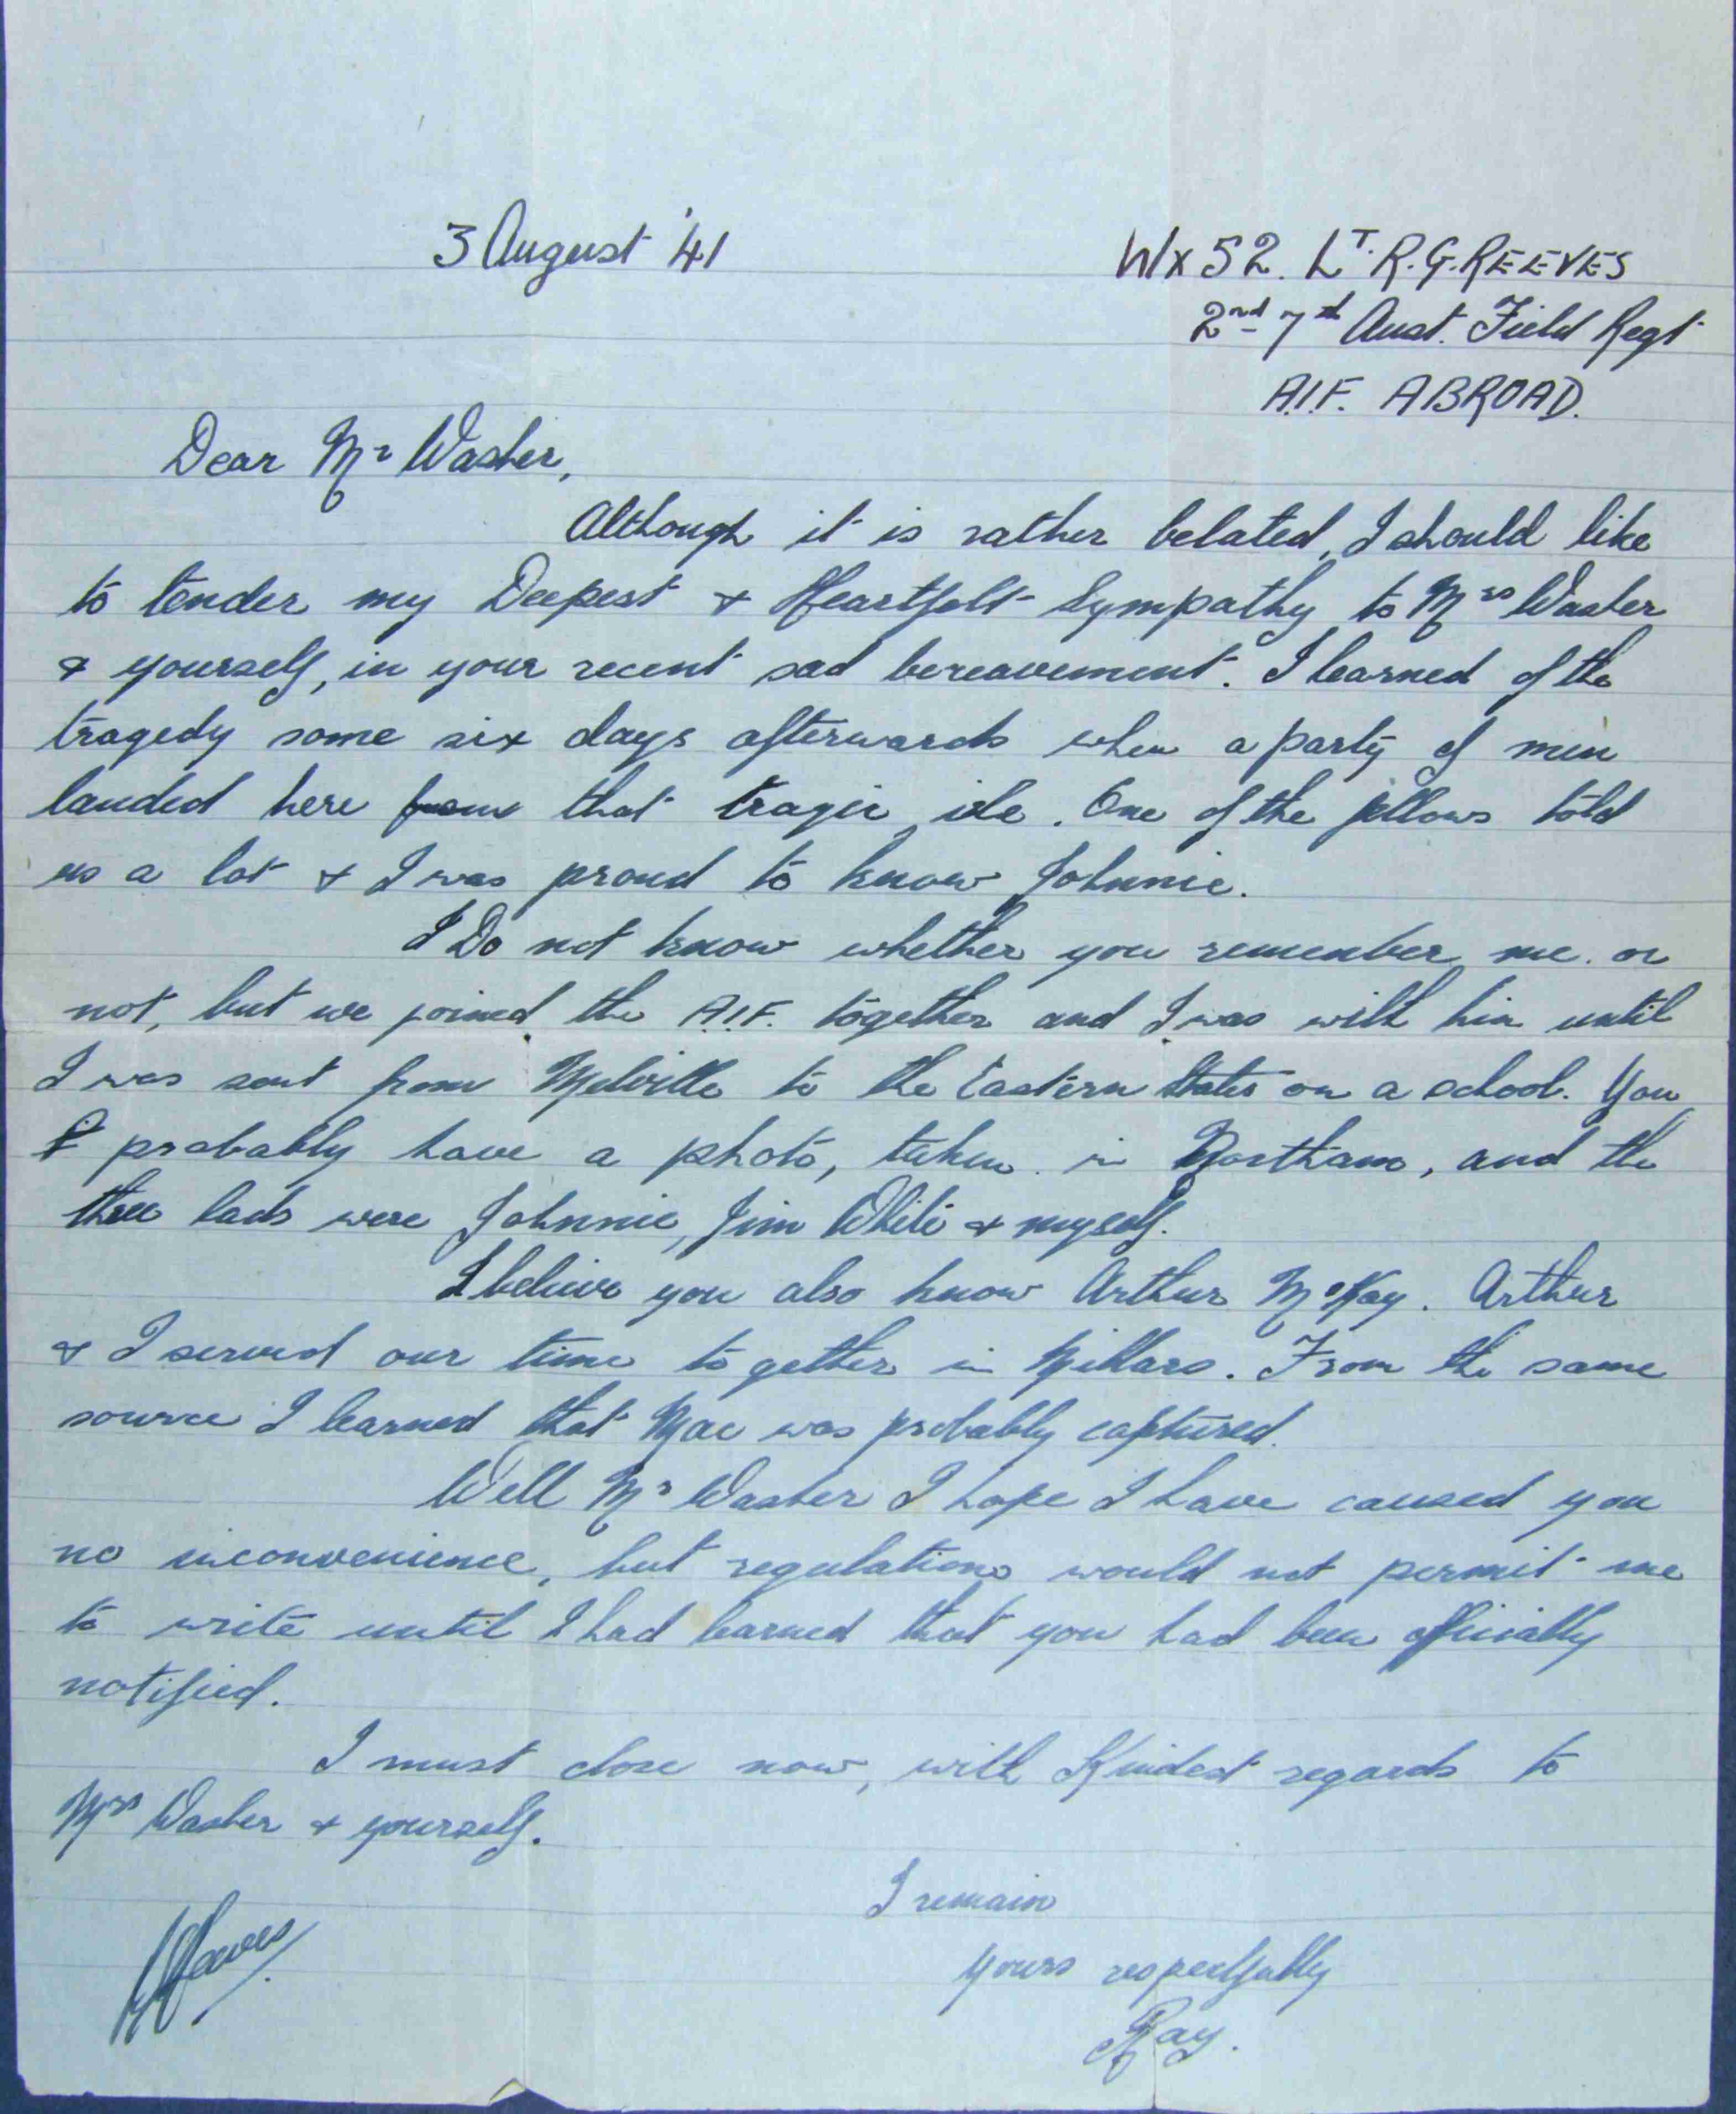 3 August '41
Wx 52. LT. R.G. REEVES
2nd 7th Aust. Field Regt
A.I.F. ABROAD.
Dear Mr Washer,
Although it is rather belated, I should like
to tender my Deepest & Heartfelt Sympathy to Mrs Washer
& yourself, in your recent sad bereavement. I learned of the
tragedy some six days afterwards when a party of men
landed here from that tragic isle. One of the fellows told
us a lot & I was proud to know Johnnie.
I Do not know whether you remember me or
not, but we joined the A.I.F. together and I was with him until
I was sent from Melville to the Eastern States on a school. You
probably have a photo, taken in Northam, and the
three lads were Johnnie, Jim White & myself.
I believe you also know Arthur McKay. Arthur
& I served our time together in Millars. From the same
source I learned that Mac was probably captured.
Well Mr Washer I hope I have caused you
no inconvenience, but regulations would not permit me
to write until I had learned that you had been officially
notified.
I must close now, with Kindest regards to
Mrs Washer & yourself.
I remain
Yours respectfully
Ray.